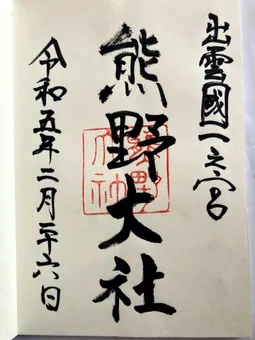 出雲國一之宮
熊野大社
令和五年二月二十六日